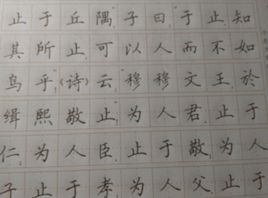 止于丘隅子曰于止知
其所止可以人而不如
鸟乎《诗》云穆穆文王於
缉熙敬止为人君止于
仁为人臣止于敬为人
子止于孝为人父止于